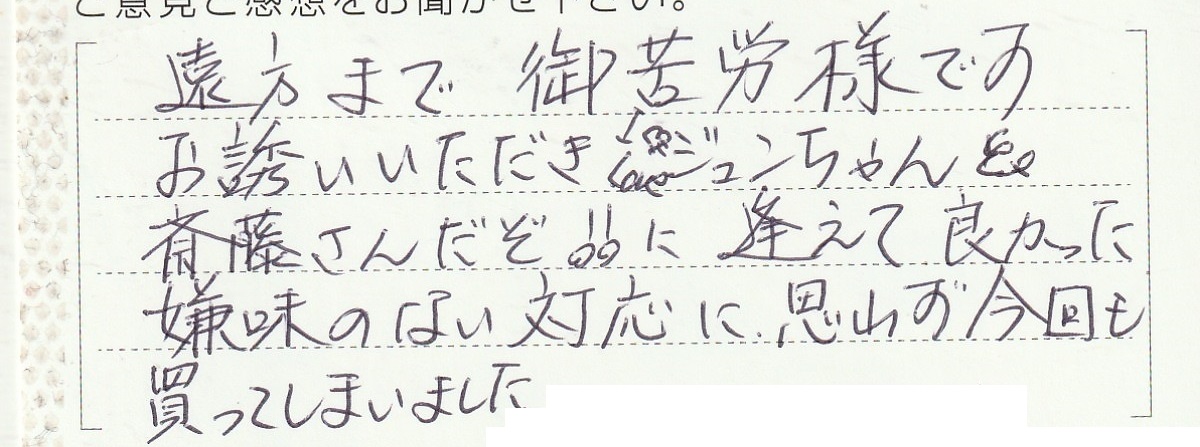 ご意見ご感想をお聞かせ下さい。
遠方まで 御苦労様です
お誘いいただき ジュンちゃん&
斎藤さんだぞ!!に 逢えて良かった
嫌味のない対応に、思わず今回も
買ってしまいました